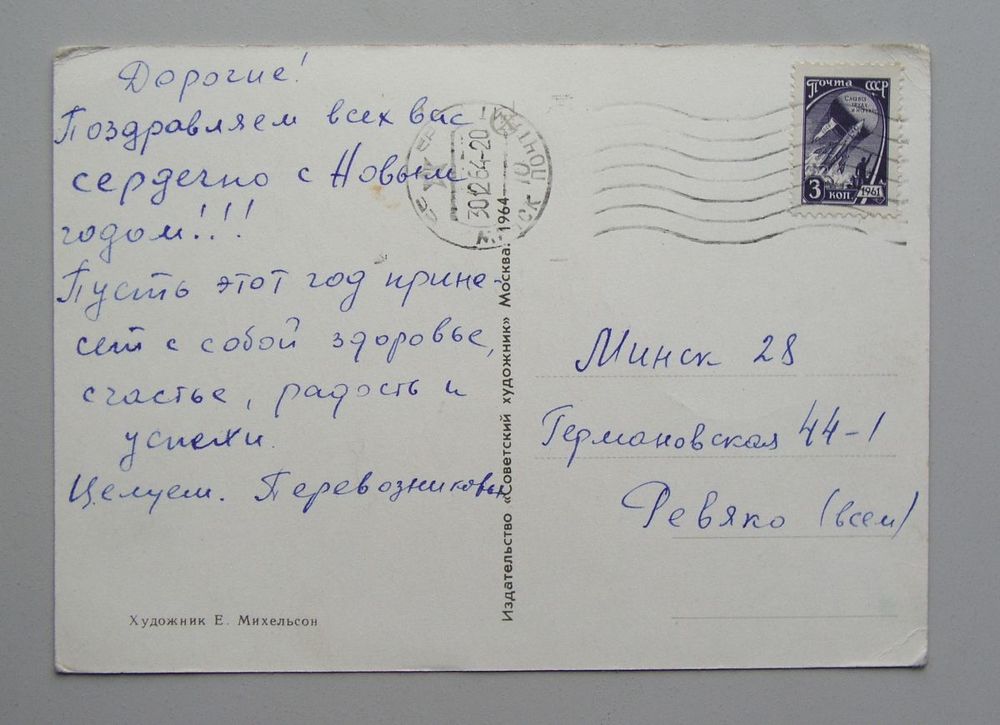 Дорогие!
Поздравляем всех вас
сердечно с Новым
годом!!!
Пусть этот год прине-
сет с собой здоровье,
счастье, радость и
успехи.
Целуем. Перевозниковы
Художник Е. Михельсон
Издательство «Советский художник» Москва. 1964
30.12.64-20
ПОЧТАМТ
Почта СССР
3 коп. 1961
Минск 28
Германовская 44-1
Ревяко (всем)